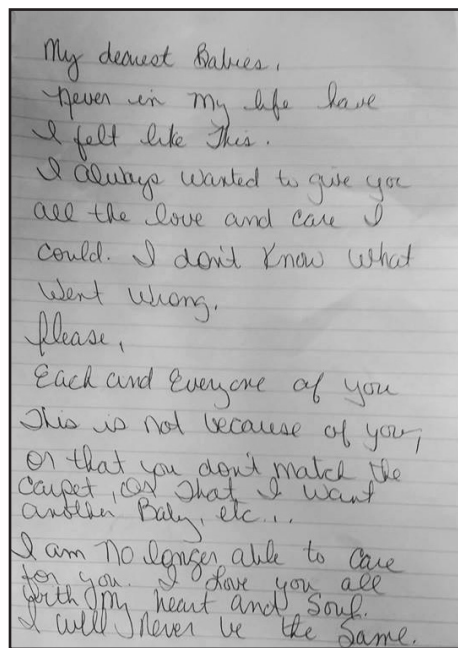 My dearest Babies,
Never in my life have
I felt like This.
I always wanted to give you
all the love and care I
could. I don't know what
went wrong.
Please,
Each and Everyone of you
This is not because of you,
or that you don't match the
carpet, or that I want
another Baby, etc...
I am no longer able to care
for you. I love you all
with my heart and soul.
I will never be the same.